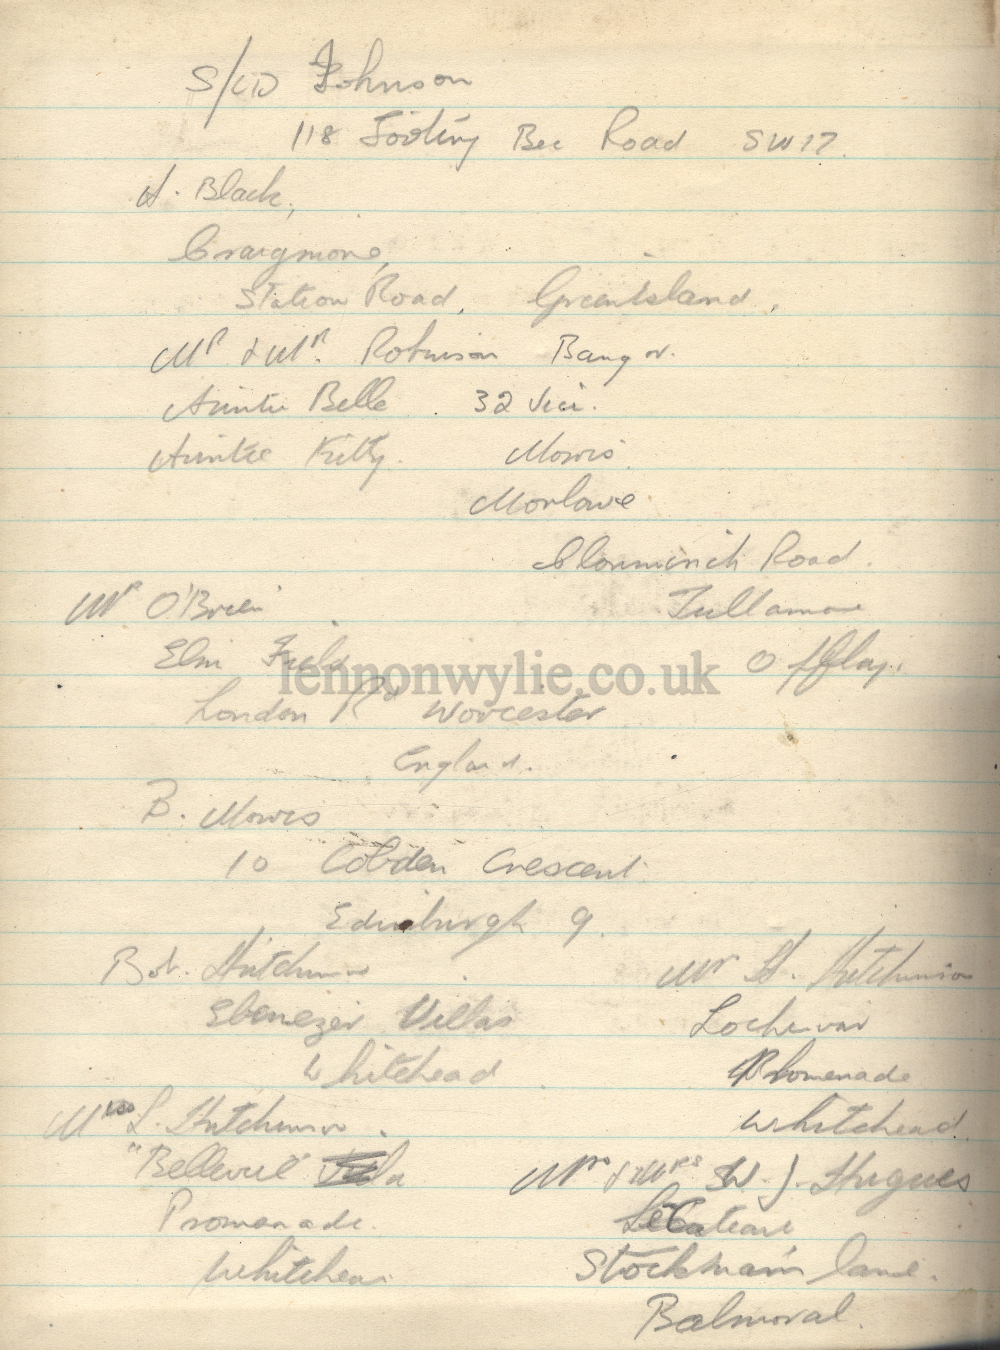 S/LD Johnson
118 Tooting Bec Road SW17.
H. Black,
Craigmore,
Station Road, Greenisland,
Mr & Mrs Robinson Bangor.
Auntie Belle 32 Vici.
Auntie Kitty. Morris
Morlowe
Clonminch Road.
Mr O'Brien Tullamore
Elm Offlay.
lennonwylie.co.uk
London Rd Worcester
England.
B. Morris
10 Cobden Crescent
Edinburgh 9.
Bob. Hutchinson Mr H. Hutchinson
Ebenezer Villas Lochinvar
Whitehead Promenade
Miss L. Hutchinson. Whitehead.
"Bellevue" Mr & Mrs W. J. Hugues
Promenade. Le Cateau
Whitehead Stockman's lane.
Balmoral.